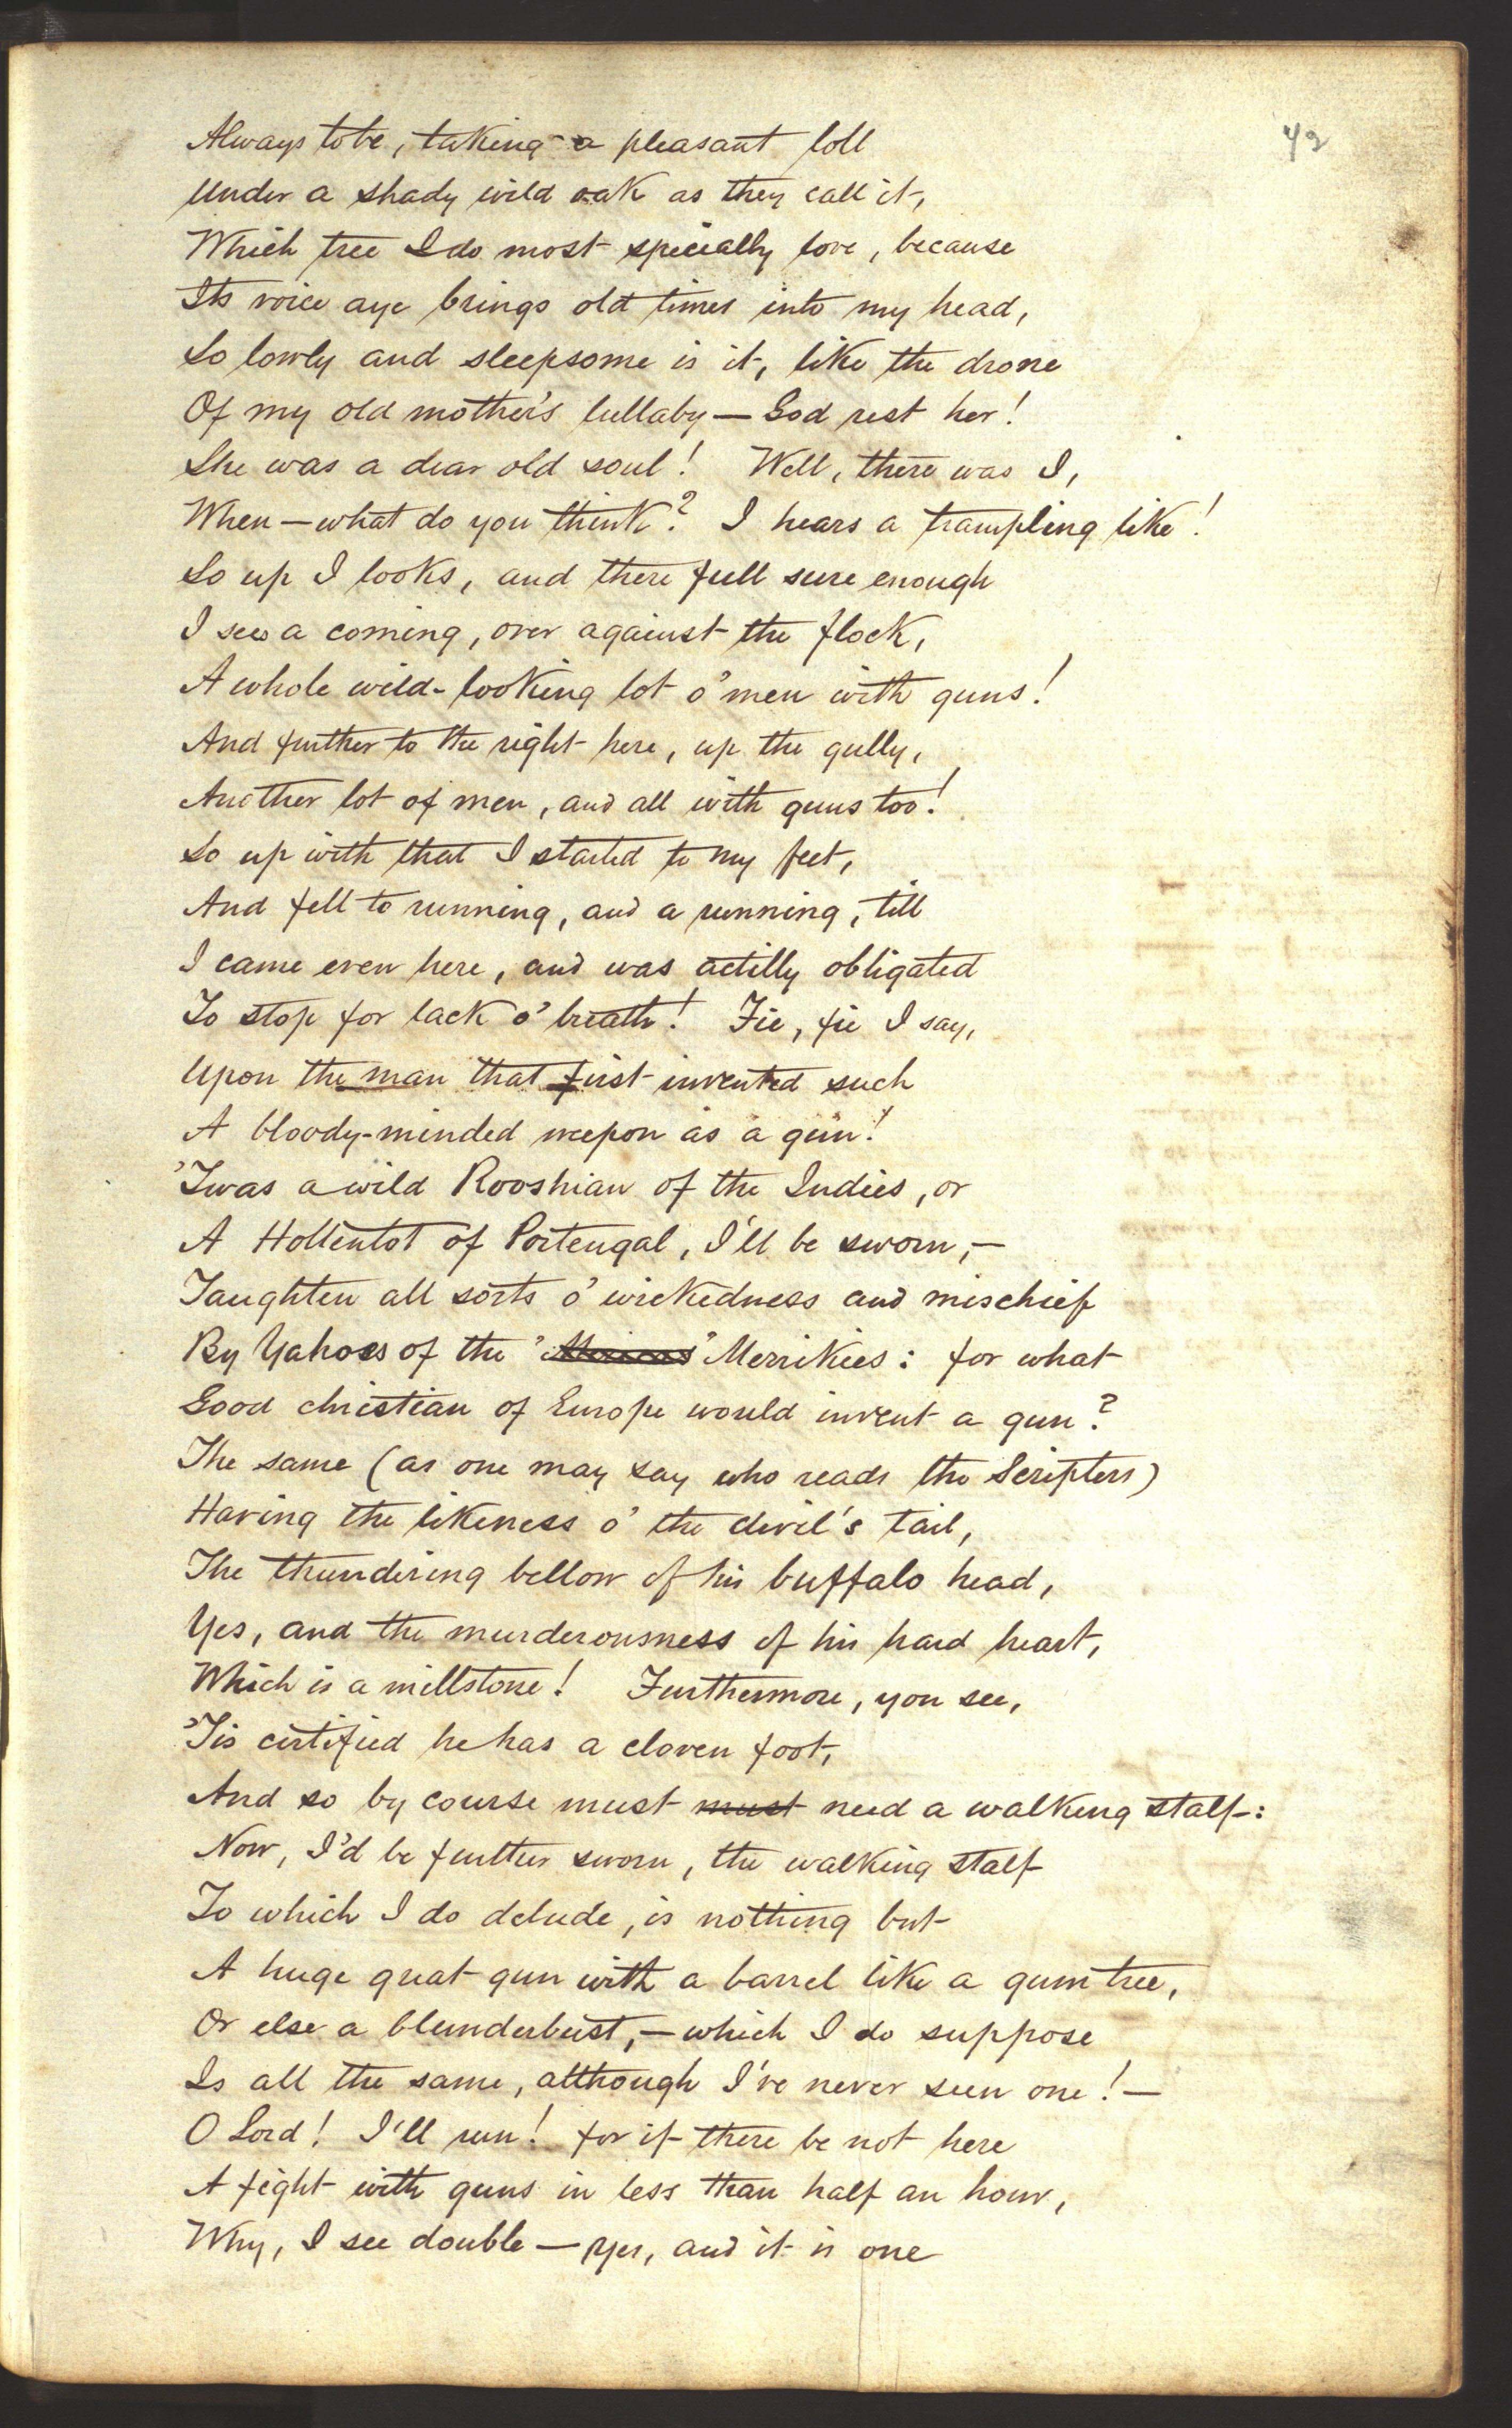 42
Always to be, taking a pleasant loll
Under a shady wild oak as they call it,
Which tree I do most specially love, because
Its voice aye brings old times into my head,
So lowly and sleepsome is it, like the drone
Of my old mother's lullaby — God rest her!
She was a dear old soul! Well, there was I,
When — what do you think? I hears a trampling like!
So up I looks, and there full sure enough
I sees a coming, over against the flock,
A whole wild-looking lot o' men with guns!
And further to the right here, up the gully,
Another lot of men, and all with guns too!
So up with that I started to my feet,
And fell to running, and a running, till
I came even here, and was actilly obligated
To stop for lack o' breath! Fie, fie I say,
Upon the man that first invented such
A bloody-minded weepon as a gun!
'Twas a wild Rooshian of the Indies, or
A Hottentot of Portengal, I'll be sworn, —
Taughten all sorts o' wickedness and mischief
By Yahoes of the 'Merrikies: for what
Good christian of Europe would invent a gun?
The same (as one may say who reads the Scripters)
Having the likeness o' the devil's tail,
The thundering bellow of his buffalo head,
Yes, and the murderousness of his hard heart,
Which is a millstone! Furthermore, you see,
'Tis certified he has a cloven foot,
And so by course must must need a walking stalf:
Now, I'd be further sworn, the walking stalf
To which I do delude, is nothing but
A huge great gun with a barrel like a gum tree,
Or else a blunderbust, — which I do suppose
Is all the same, although I've never seen one! —
O Lord! I'll run! for if there be not here
A fight with guns in less than half an hour,
Why, I see double — Yes, and it is one